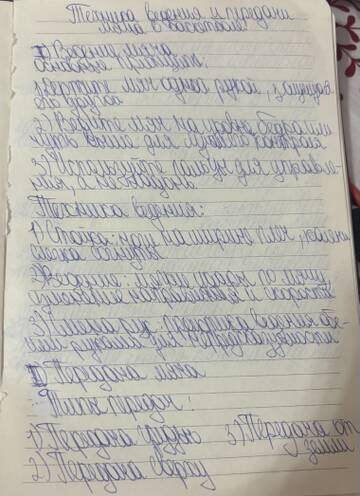 Техника ведения и передачи
мяча в баскетболе.
1) Ведение мяча
Основные принципы:
1) Держите мяч одной рукой, защищая
его другой
2) Ведите мяч на уровне бедра или
чуть выше для лучшего контроля
3) Используйте пальцы для управле-
ния, а не ладонь
Техника ведения:
1) Стойка: ноги на ширине плеч, колени
слегка согнуты
2) Ведение: мячи по мячу,
направление и скорость
3) Смена рук: практика ведения обе-
ими руками для непредсказуемости
Передача мяча
Типы передач:
1) Передача грудью 3) Передача от
земли
2) Передача сверху